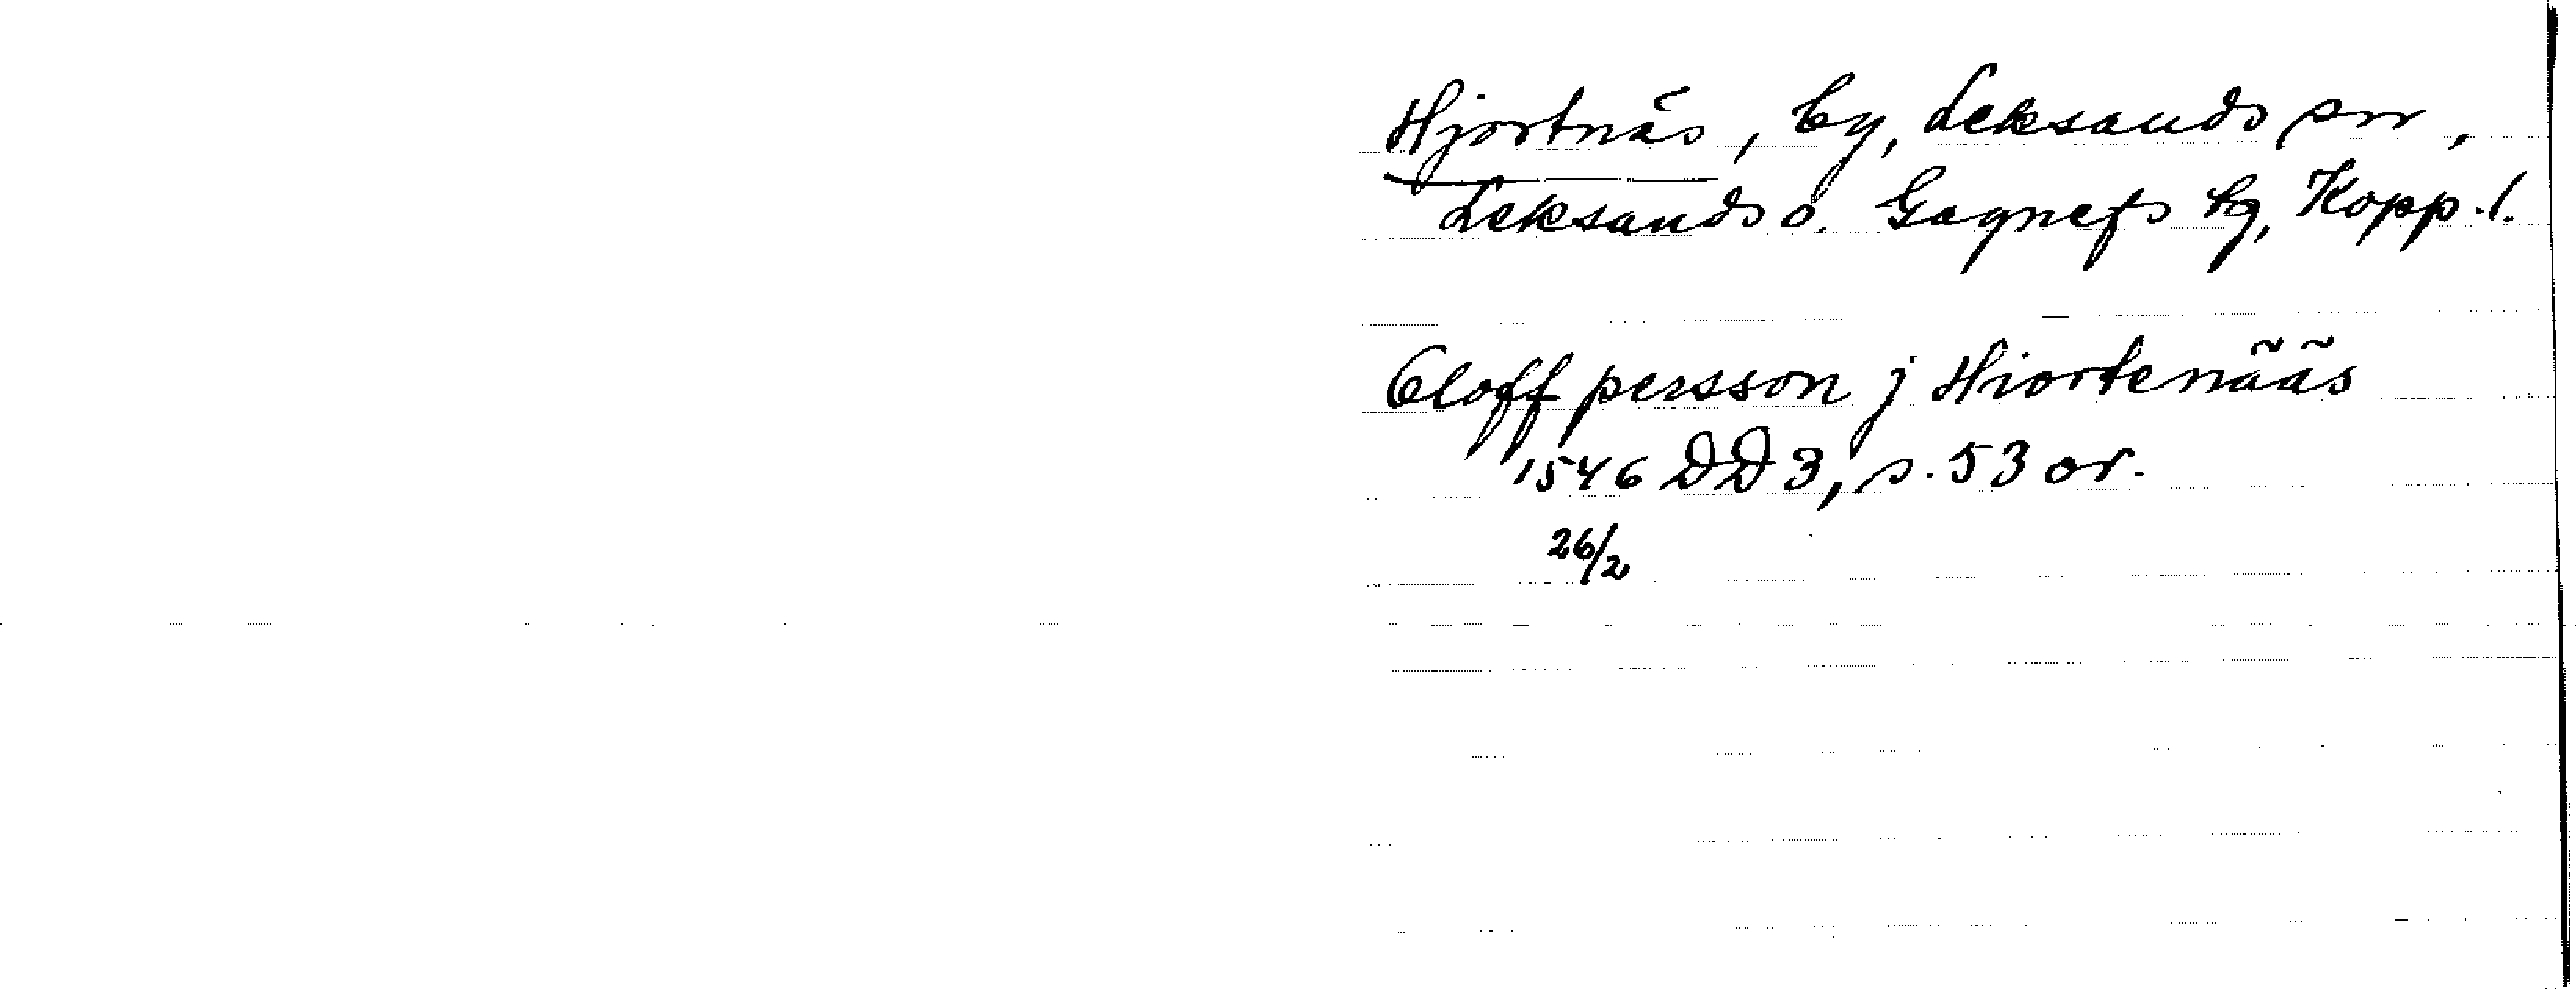 Hjortnäs, by, Leksands sn,
Leksands o. Gagnefs tg, Kopp. l.
Oloff persson j Hiortenääs
1546 DD 3, s. 53 or.
26/2